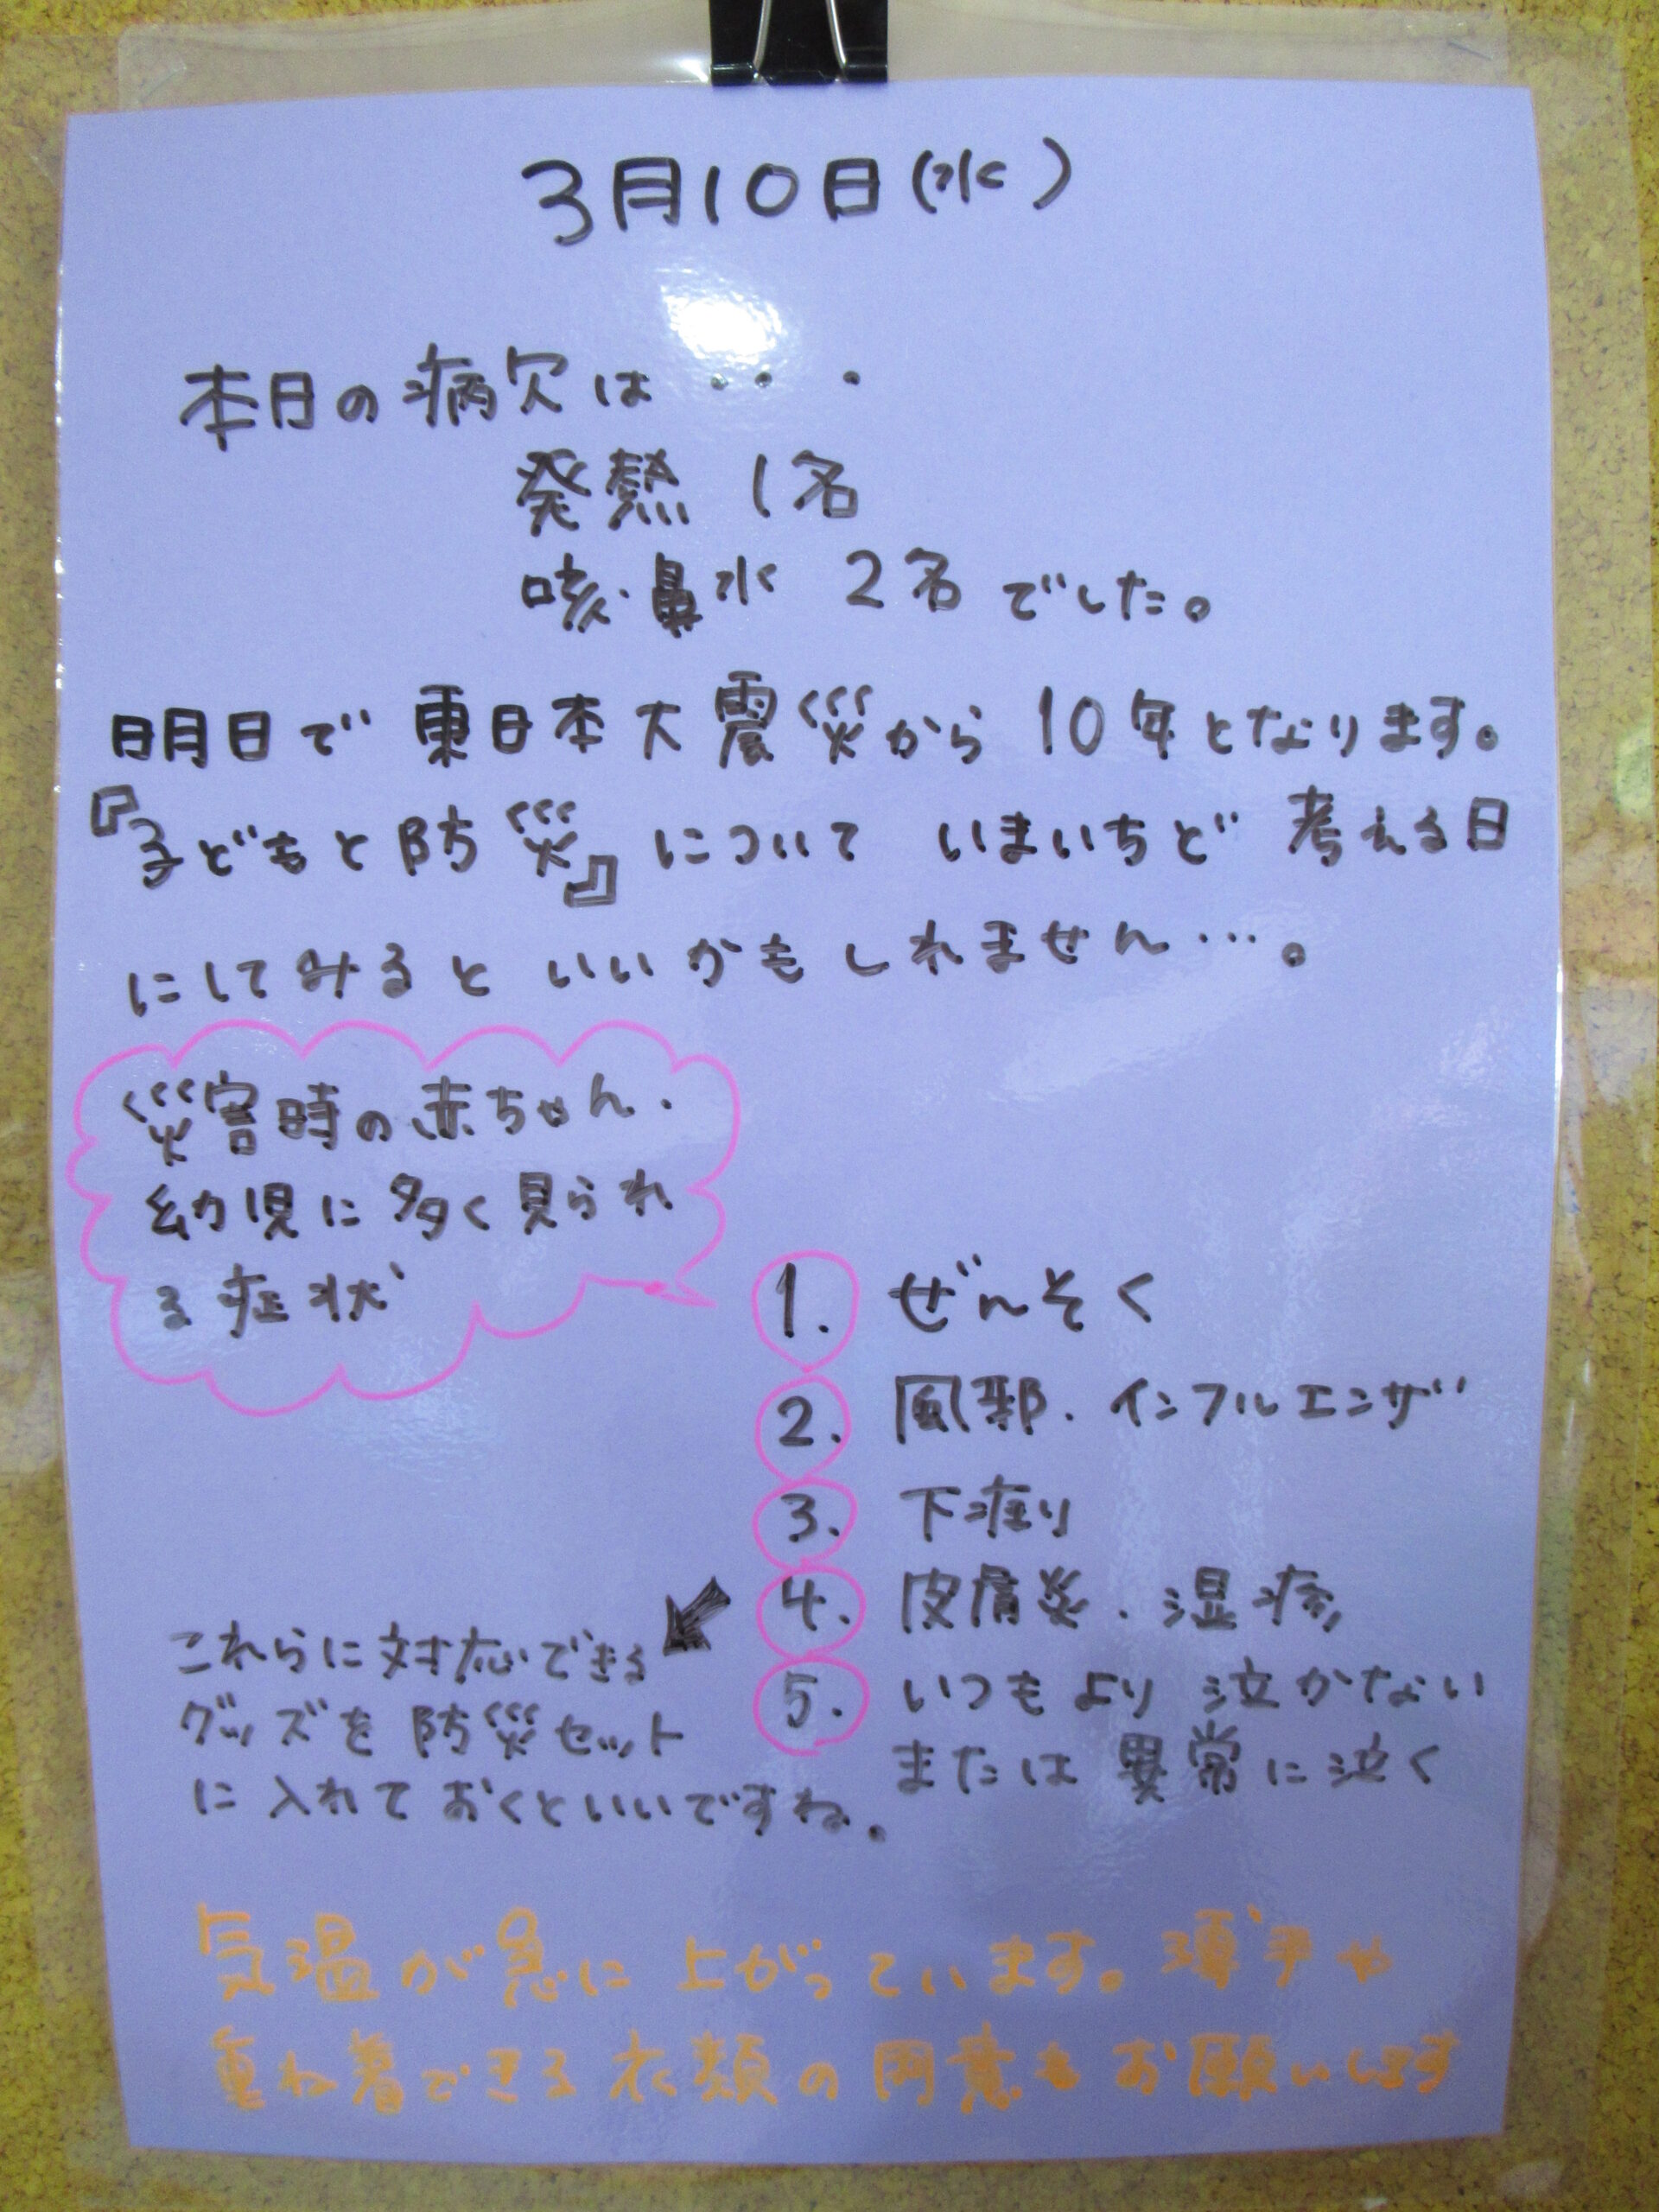 3月10日(水)
本日の病欠は・・・
発熱 1名
咳・鼻水 2名でした。
明日で東日本大震災から10年となります。
『子どもと防災』について いまいちど 考える日
にしてみると いいかもしれません…。
災害時の赤ちゃん・
幼児に多く見られ
る症状
1. ぜんそく
2. 風邪・インフルエンザ
3. 下痢り
4. 皮膚炎・湿疹
5. いつもより 泣かない
または 異常に泣く
これらに対応できる
グッズを防災セット
に入れておくといいですね。
気温が急に上がっています。薄手や
重ね着できる衣類の用意もお願いします